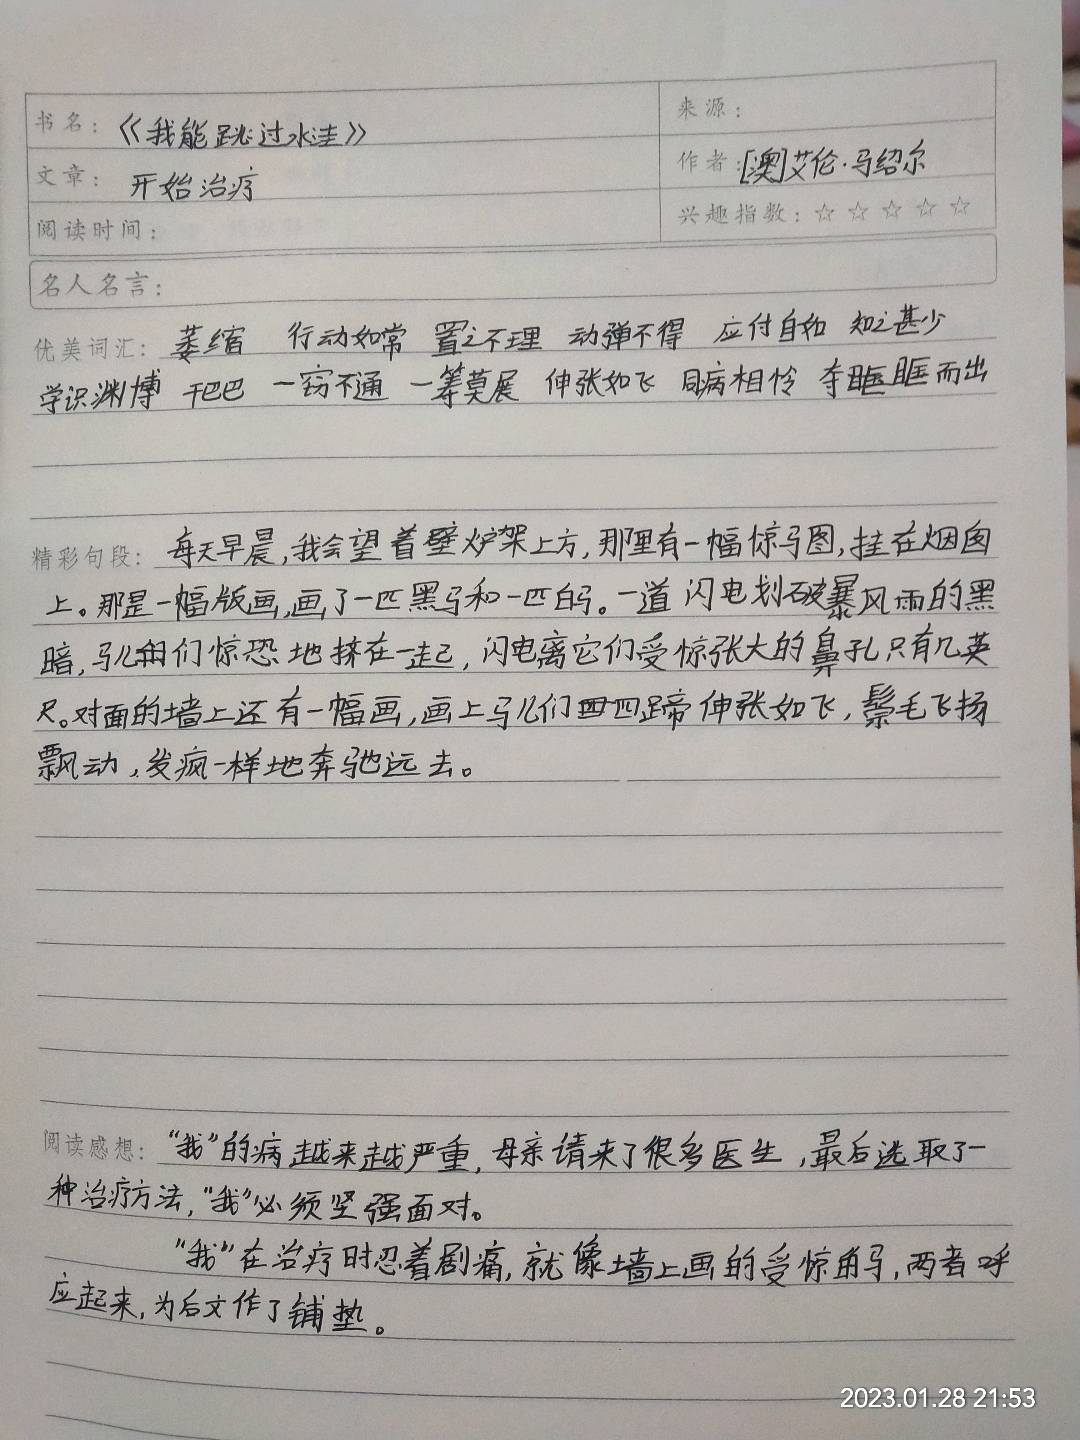 书名：《我能跳过水洼》
来源：
文章：开始治疗
作者：[澳]艾伦·马绍尔
阅读时间：
兴趣指数：☆☆☆☆☆
名人名言：
优美词汇：萎缩 行动如常 置之不理 动弹不得 应付自如 知之甚少
学识渊博 干巴巴 一窍不通 一筹莫展 伸张如飞 同病相怜 夺眶而出
精彩句段：每天早晨,我会望着壁炉架上方,那里有一幅惊马图,挂在烟囱
上。那是一幅版画,画了一匹黑马和一匹白马。一道闪电划破暴风雨的黑
暗,马儿们惊恐地挤在一起,闪电离它们受惊张大的鼻孔只有几英
尺。对面的墙上还有一幅画,画上马儿们四蹄伸张如飞,鬃毛飞扬
飘动,发疯一样地奔驰远去。
阅读感想：“我”的病越来越严重,母亲请来了很多医生,最后选取了一
种治疗方法,“我”必须坚强面对。
“我”在治疗时忍着剧痛,就像墙上画的受惊的马,两者呼
应起来,为后文作了铺垫。
2023.01.28 21:53